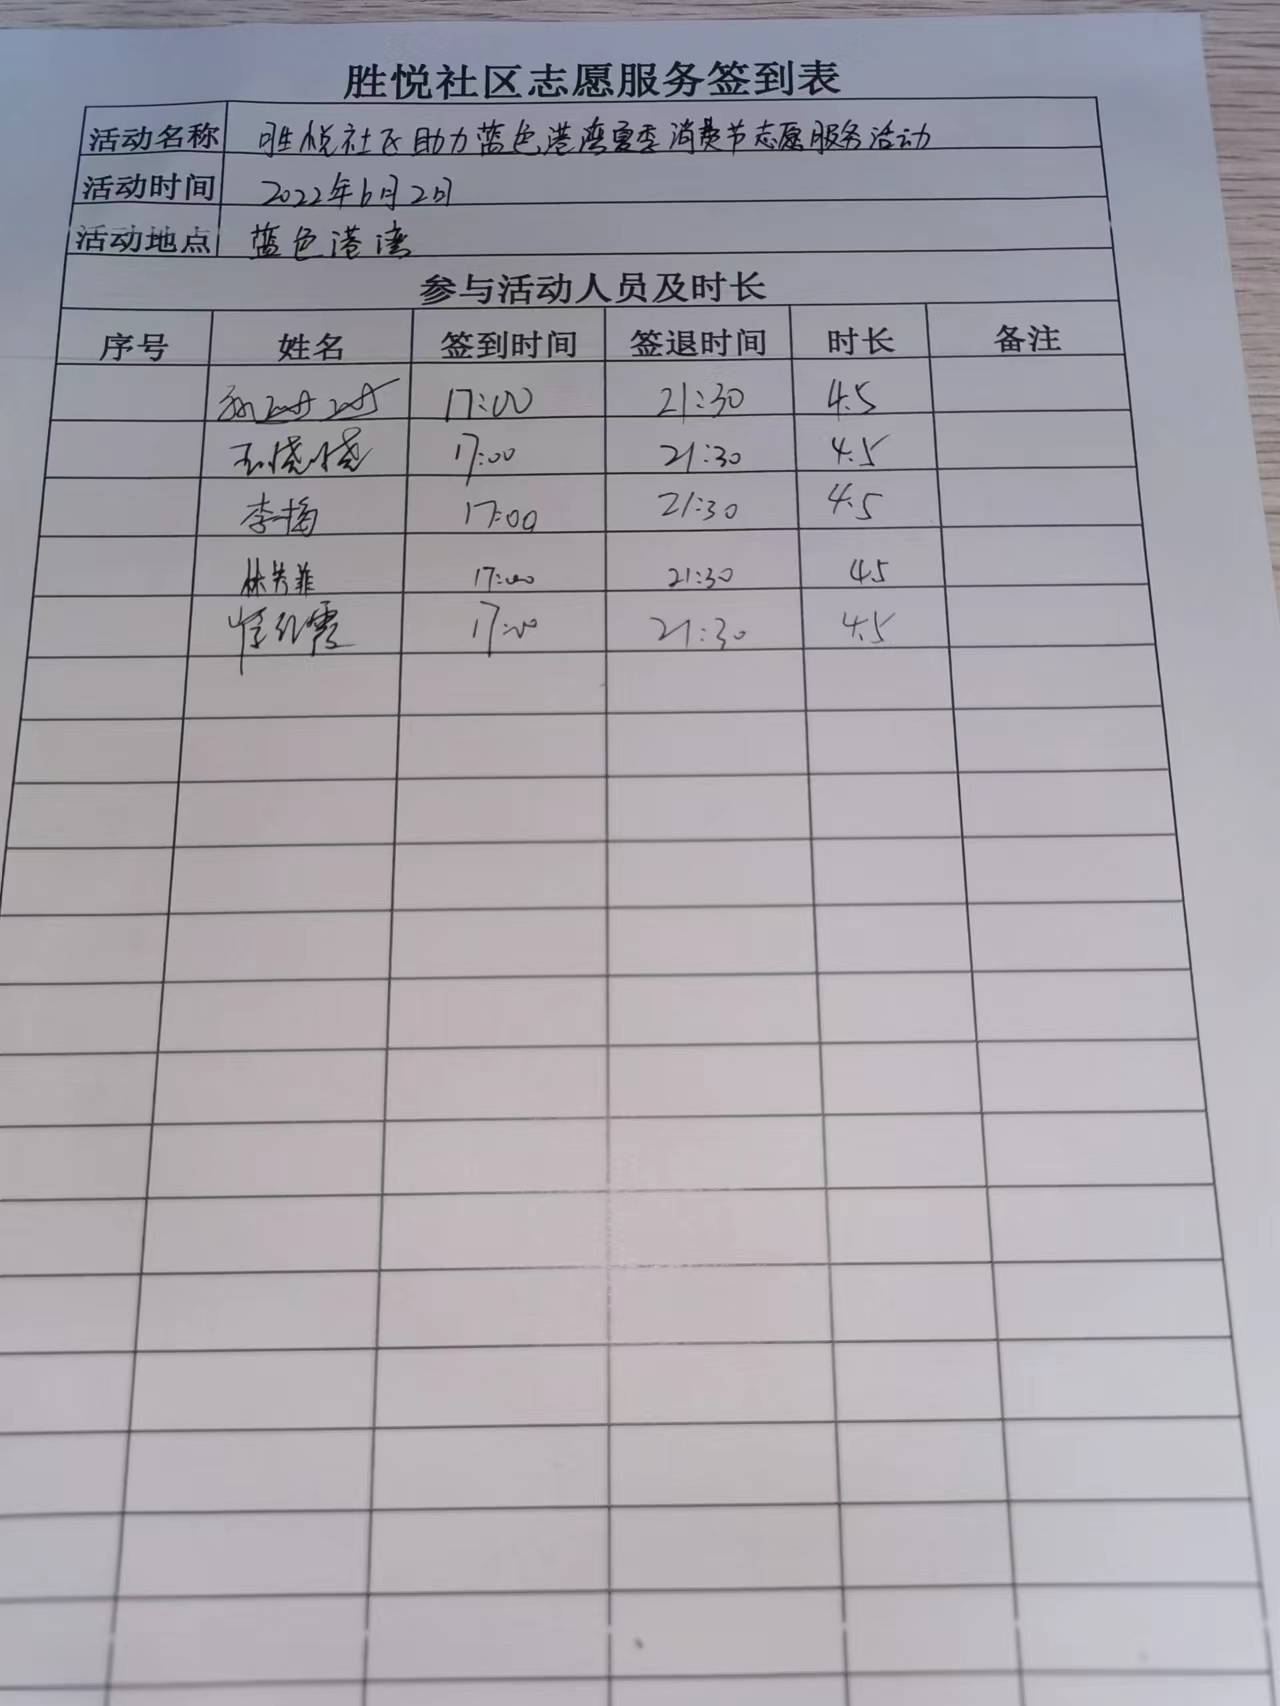 胜悦社区志愿服务签到表
活动名称 胜悦社区助力蓝色港湾夏季消费节志愿服务活动
活动时间 2022年6月2日
活动地点 蓝色港湾
参与活动人员及时长
序号 姓名 签到时间 签退时间 时长 备注
17:00 21:30 4.5
王晓晓 17:00 21:30 4.5
李梅 17:00 21:30 4.5
林芳菲 17:00 21:30 4.5
红霞 17:00 21:30 4.5